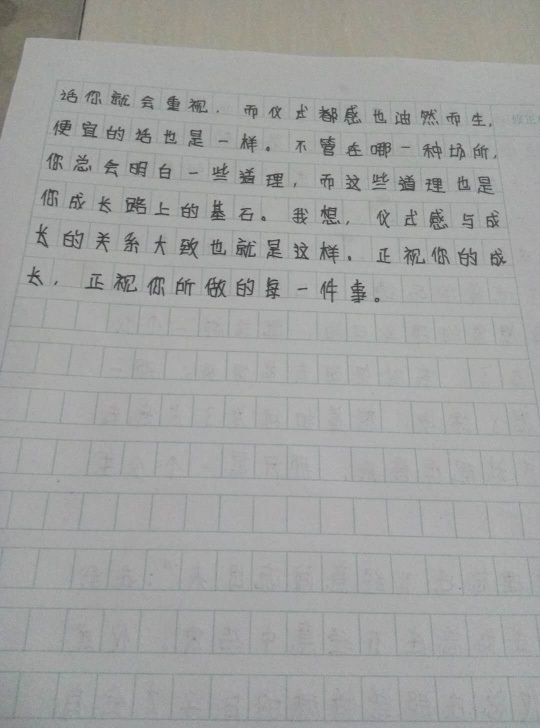 话你就会重视，而仪式都感也油然而生，
便宜的话也是一样。不管在哪一种场所，
你总会明白一些道理，而这些道理也是
你成长路上的基石。我想，仪式感与成
长的关系大致也就是这样。正视你的成
长，正视你所做的每一件事。